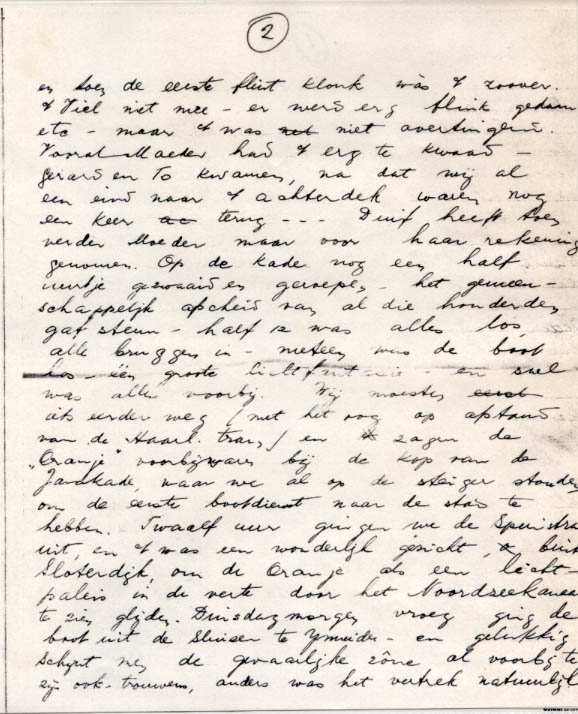 2
en toen de eerste fluit klonk was 't zoover.
't Viel niet mee - er werd erg flink gedaan
etc - maar 't was niet overtuigend.
Vooral Moeder had 't erg te kwaad -
Gerard en To kwamen, na dat wij al
een eind naar 't achterdek waren nog
een keer terug - - - Duif heeft toen
verder Moeder maar voor haar rekening
genomen. Op de kade nog een half
uurtje gezwaaid en geroepen - het gemeen-
schappelijk afscheid van al die honderden
gaf steun - half 12 was alles los,
alle bruggen in - meteen was de boot
los - één groote licht - en snel
was alles voorbij. Wij moesten eerst
iets eerder weg / met het oog op afstand
van de Haarl. tram / en zagen de
"Oranje" voorbijvaren bij de kop van de
Javakade, waar we al op de steiger stonden
om de eerste bootdienst naar de stad te
hebben. Twaalf uur gingen we de Spuistra
uit, en 't was een wonderlijk gezicht,
Sloterdijk, om de Oranje als een licht-
paleis in de verte door het Noordzeekanaal
te zien glijden. Dinsdagmorgen vroeg ging de
boot uit de sluizen te IJmuiden - en gelukkig
schijnt nu de gevaarlijke zône al voorbij te
zijn ook - trouwens, anders was het vertrek natuurlijk